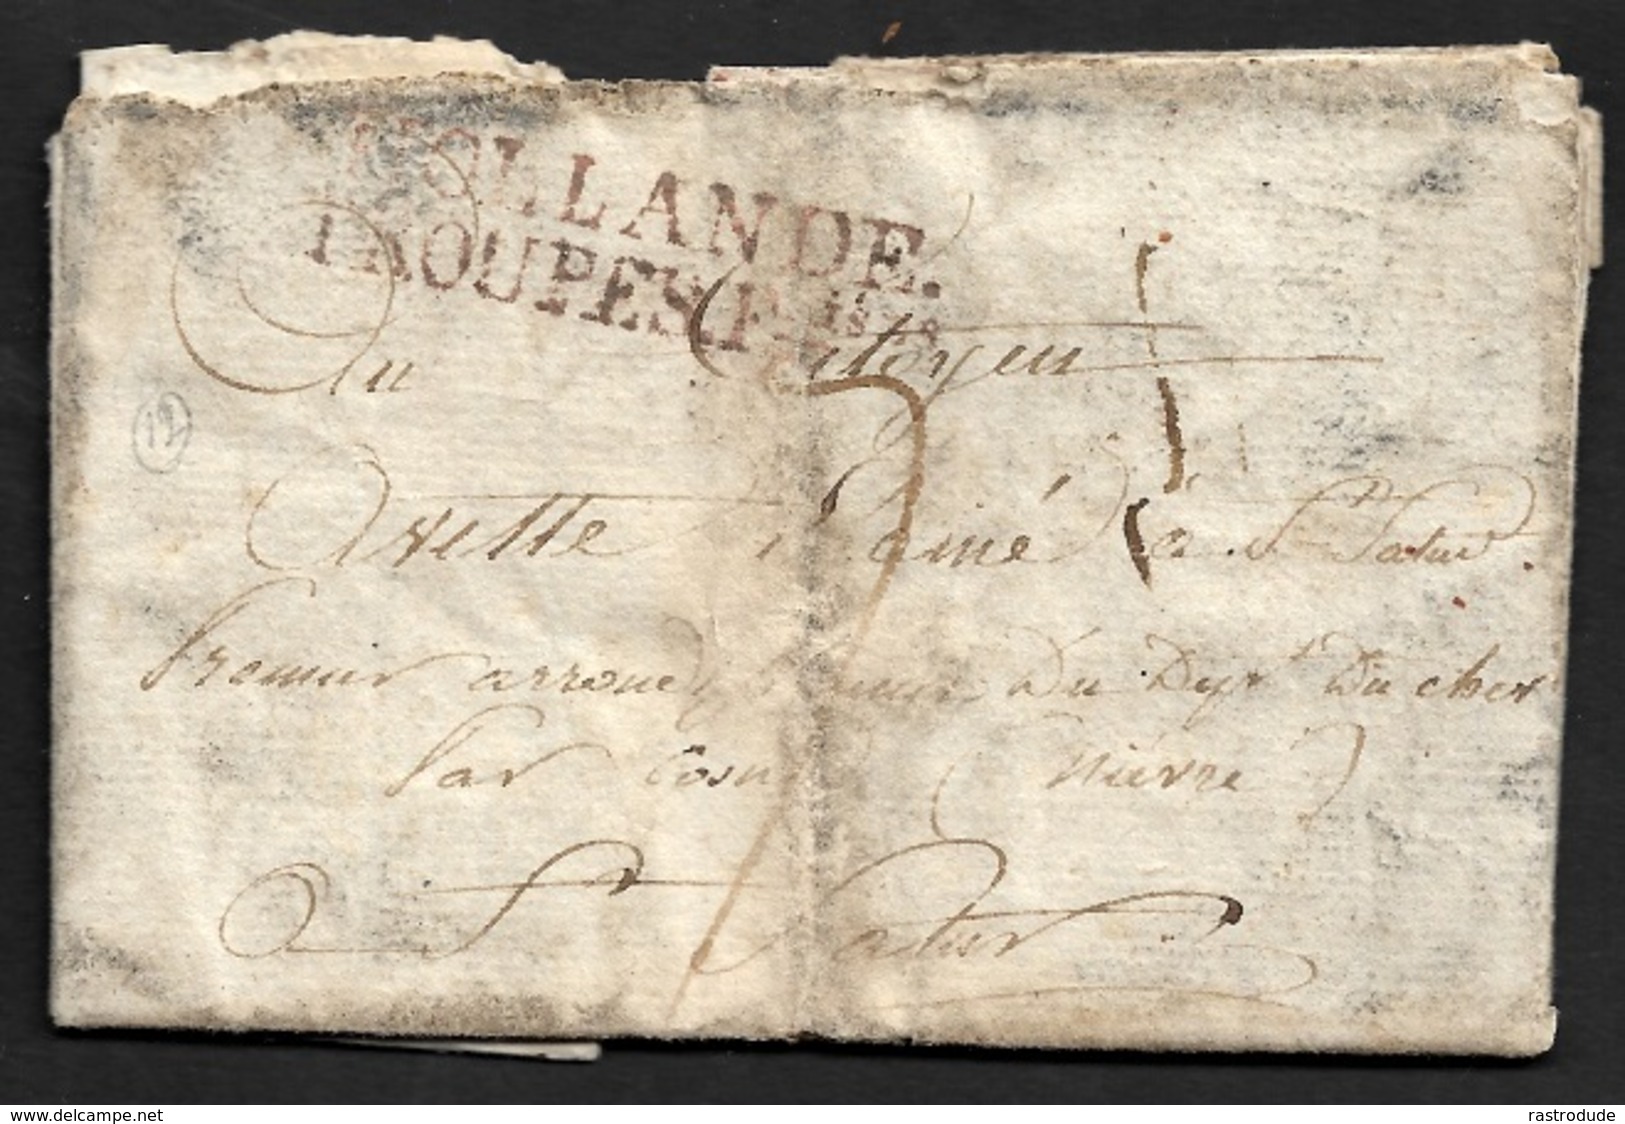 HOLLANDE.
TROUPES Fses
Au Citoyen
12
l'ainé à St Satur
Premier arrond du Dept du cher
Par Cosne (Nièvre)
A St Satur
delcampe.net
rastrodude